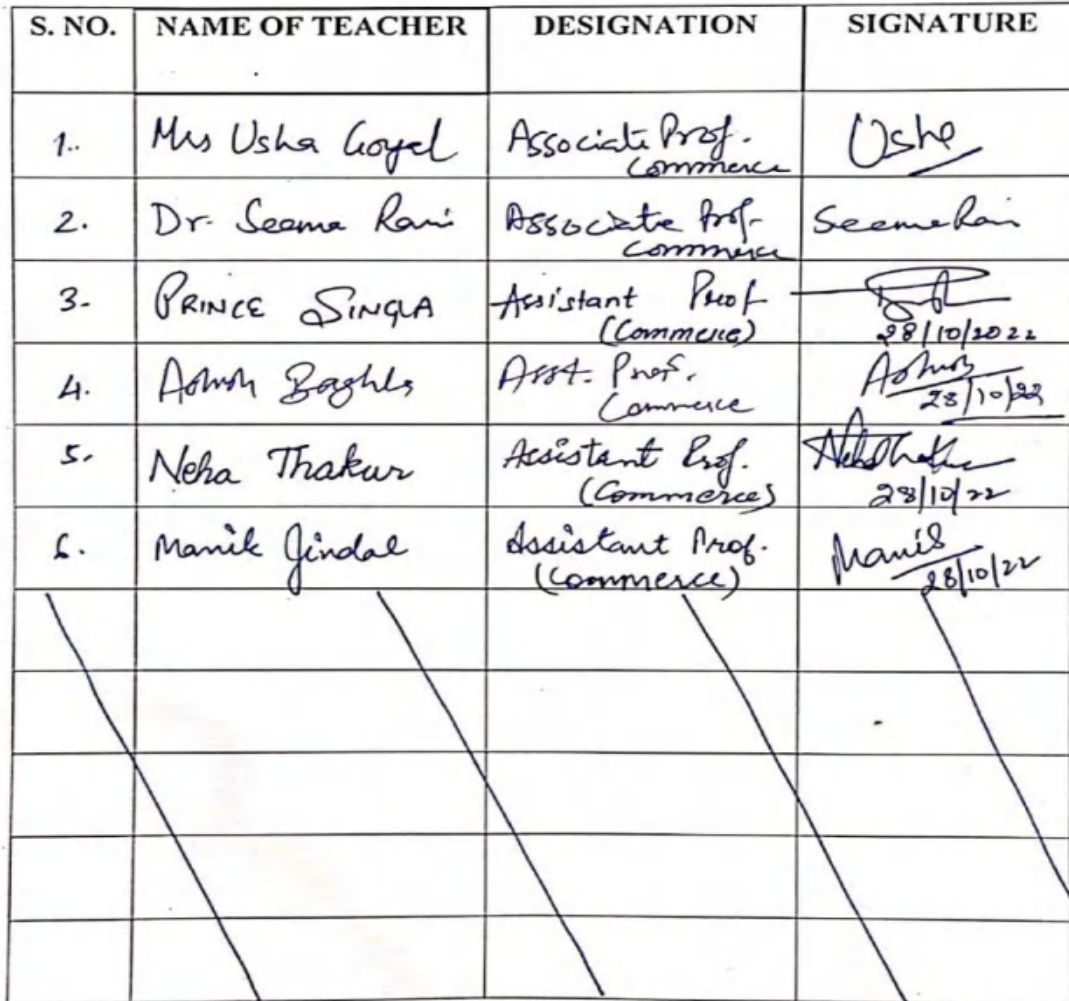 S. NO. NAME OF TEACHER DESIGNATION SIGNATURE
1. Mrs Usha Goyal Associate Prof. Commerce Usha
2. Dr. Seema Rani Associate Prof. Commerce Seema Rani
3. PRINCE SINGLA Assistant Prof (Commerce) 28/10/2022
4. Ashish Asst. Prof. Commerce Ashish 28/10/22
5. Neha Thakur Assistant Prof. (Commerce) Neha Thakur 28/10/22
6. Manik Jindal Assistant Prof. (Commerce) Manik 28/10/22